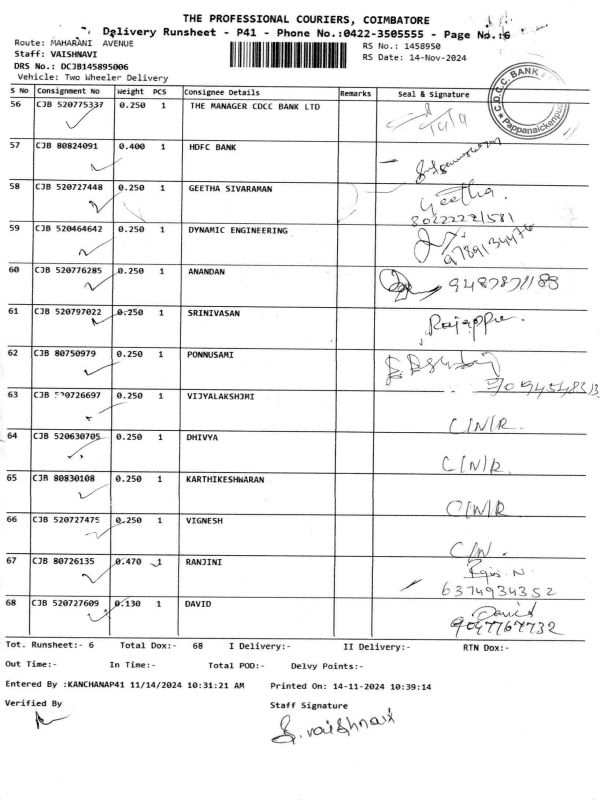 THE PROFESSIONAL COURIERS, COIMBATORE
Delivery Runsheet - P41 - Phone No.:0422-3505555 - Page No.:6
Route: MAHARANI AVENUE
Staff: VAISHNAVI
DRS No.: DCJB145895006
Vehicle: Two Wheeler Delivery
RS No.: 1458950
RS Date: 14-Nov-2024
C.D.C.C. BANK
Pappanaickenpudur
S No Consignment No Weight PCS Consignee Details Remarks Seal & Signature
56 CJB 520775337 0.250 1 THE MANAGER CDCC BANK LTD
57 CJB 80824091 0.400 1 HDFC BANK
58 CJB 520727448 0.250 1 GEETHA SIVARAMAN Geetha.
59 CJB 520464642 0.250 1 DYNAMIC ENGINEERING 9789134476
60 CJB 520776285 0.250 1 ANANDAN 9487871188
61 CJB 520797022 0.250 1 SRINIVASAN Rajappa.
62 CJB 80750979 0.250 1 PONNUSAMI
63 CJB 520726697 0.250 1 VIJYALAKSHJMI C/N/R.
64 CJB 520630705 0.250 1 DHIVYA C/N/R.
65 CJB 80830108 0.250 1 KARTHIKESHWARAN C/N/R
66 CJB 520727475 0.250 1 VIGNESH C/N.
67 CJB 80726135 0.470 1 RANJINI
6374934352
68 CJB 520727609 0.130 1 DAVID David
9047767732
Tot. Runsheet:- 6 Total Dox:- 68 I Delivery:- II Delivery:- RTN Dox:-
Out Time:- In Time:- Total POD:- Delvy Points:-
Entered By :KANCHANAP41 11/14/2024 10:31:21 AM Printed On: 14-11-2024 10:39:14
Verified By Staff Signature
S. Vaishnavi